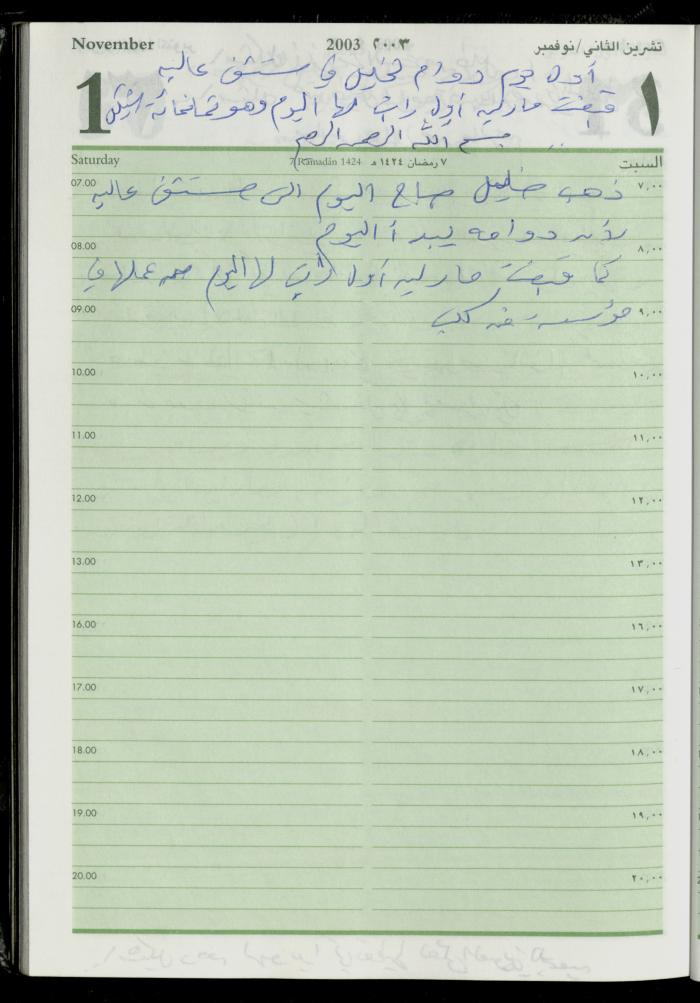 November 2003 ٢٠٠٣ تشرين الثاني/نوفمبر
أول يوم دوام لخليل في مستشفى عاليه
1 ١
قبضت مارليه أول راتب لها اليوم وهو ثمانمائة شيكل
بسم الله الرحمن الرحيم
Saturday 7 Ramadān 1424 ٧ رمضان ١٤٢٤ هـ السبت
07.00 ٧,٠٠
ذهب خليل صباح اليوم الى مستشفى عاليه
لأن دوامه يبدأ اليوم
08.00 ٨,٠٠
كما قبضت مارليه أول راتب لها اليوم من عملها في
09.00 ٩,٠٠
مؤسسة
10.00 ١٠,٠٠
11.00 ١١,٠٠
12.00 ١٢,٠٠
13.00 ١٣,٠٠
16.00 ١٦,٠٠
17.00 ١٧,٠٠
18.00 ١٨,٠٠
19.00 ١٩,٠٠
20.00 ٢٠,٠٠